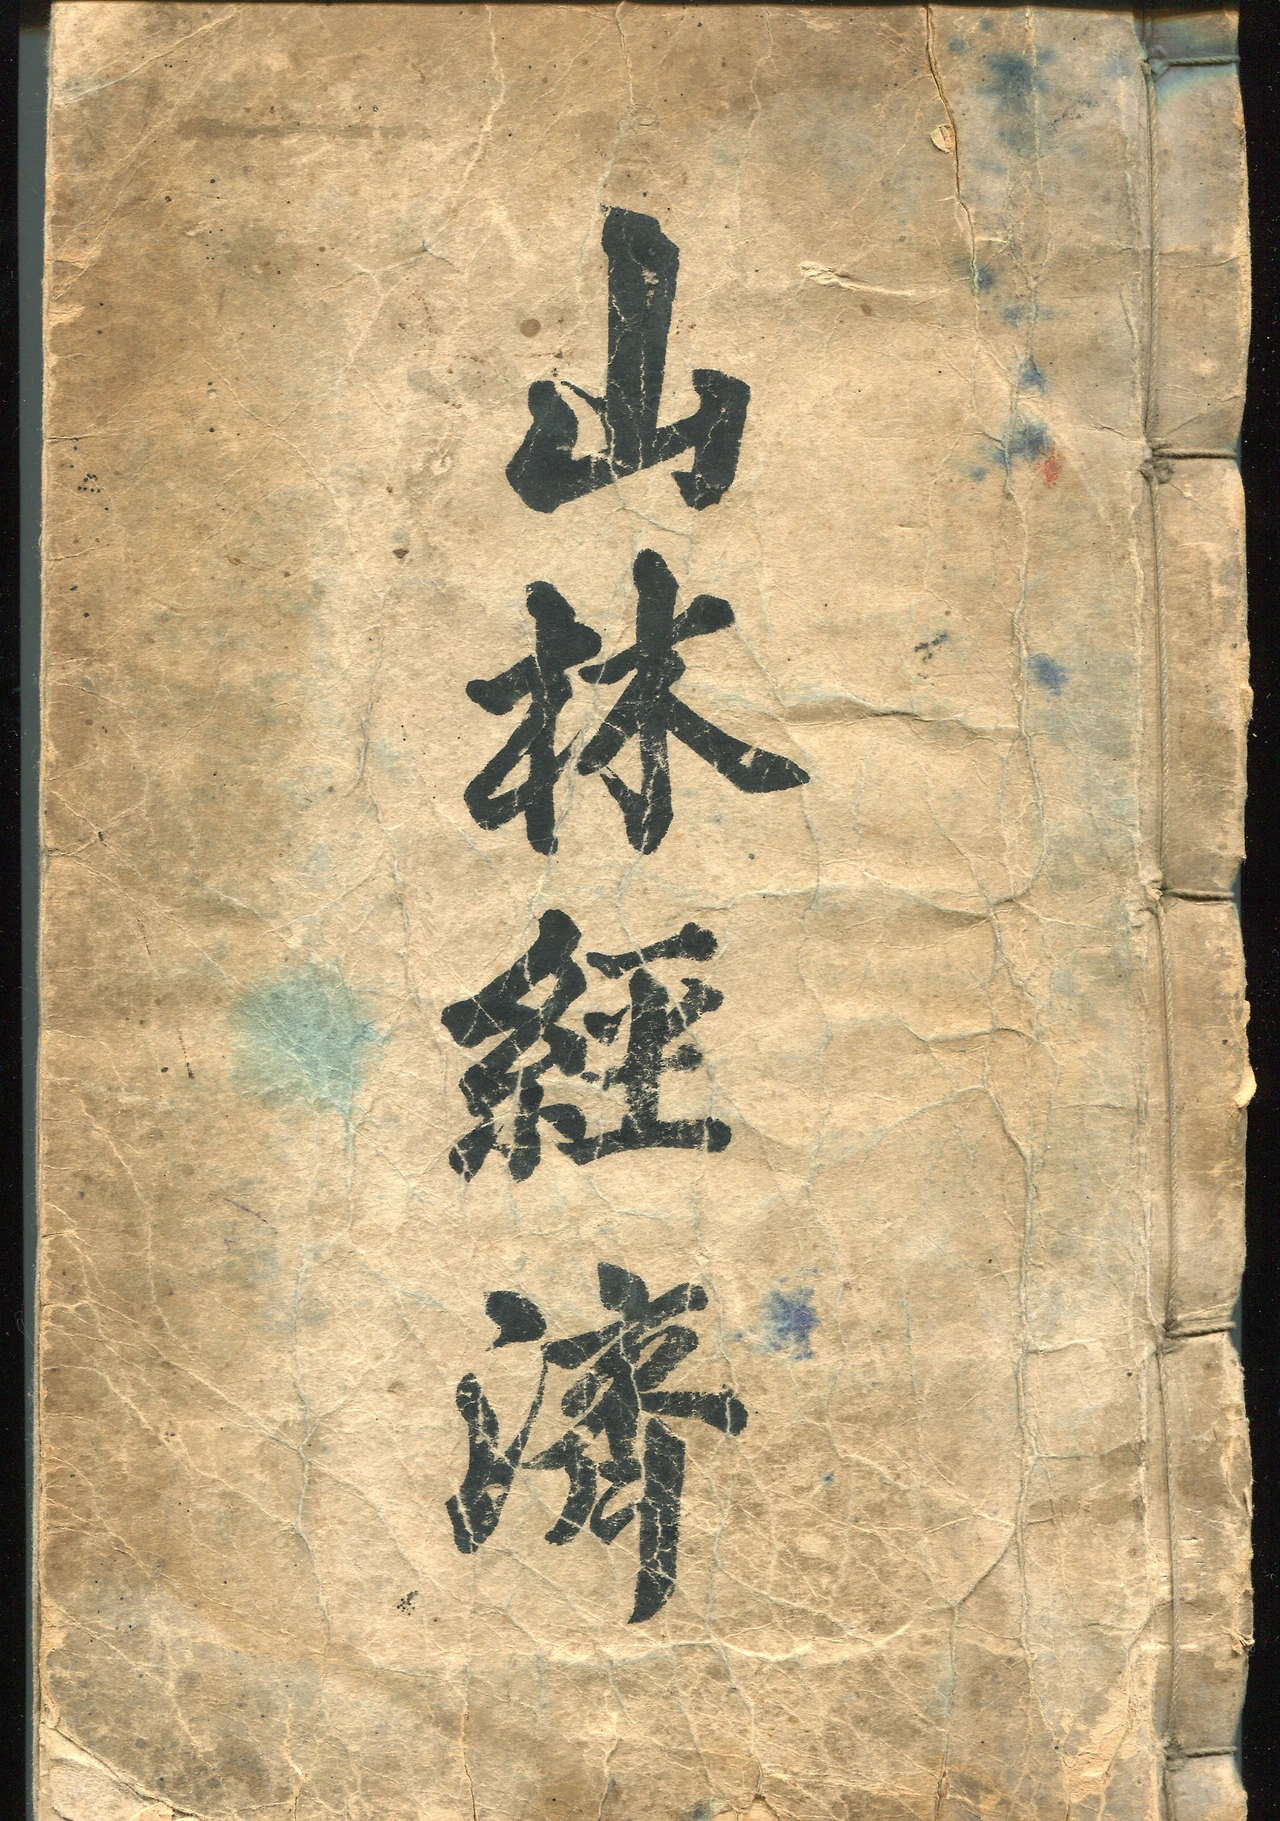 山林經濟